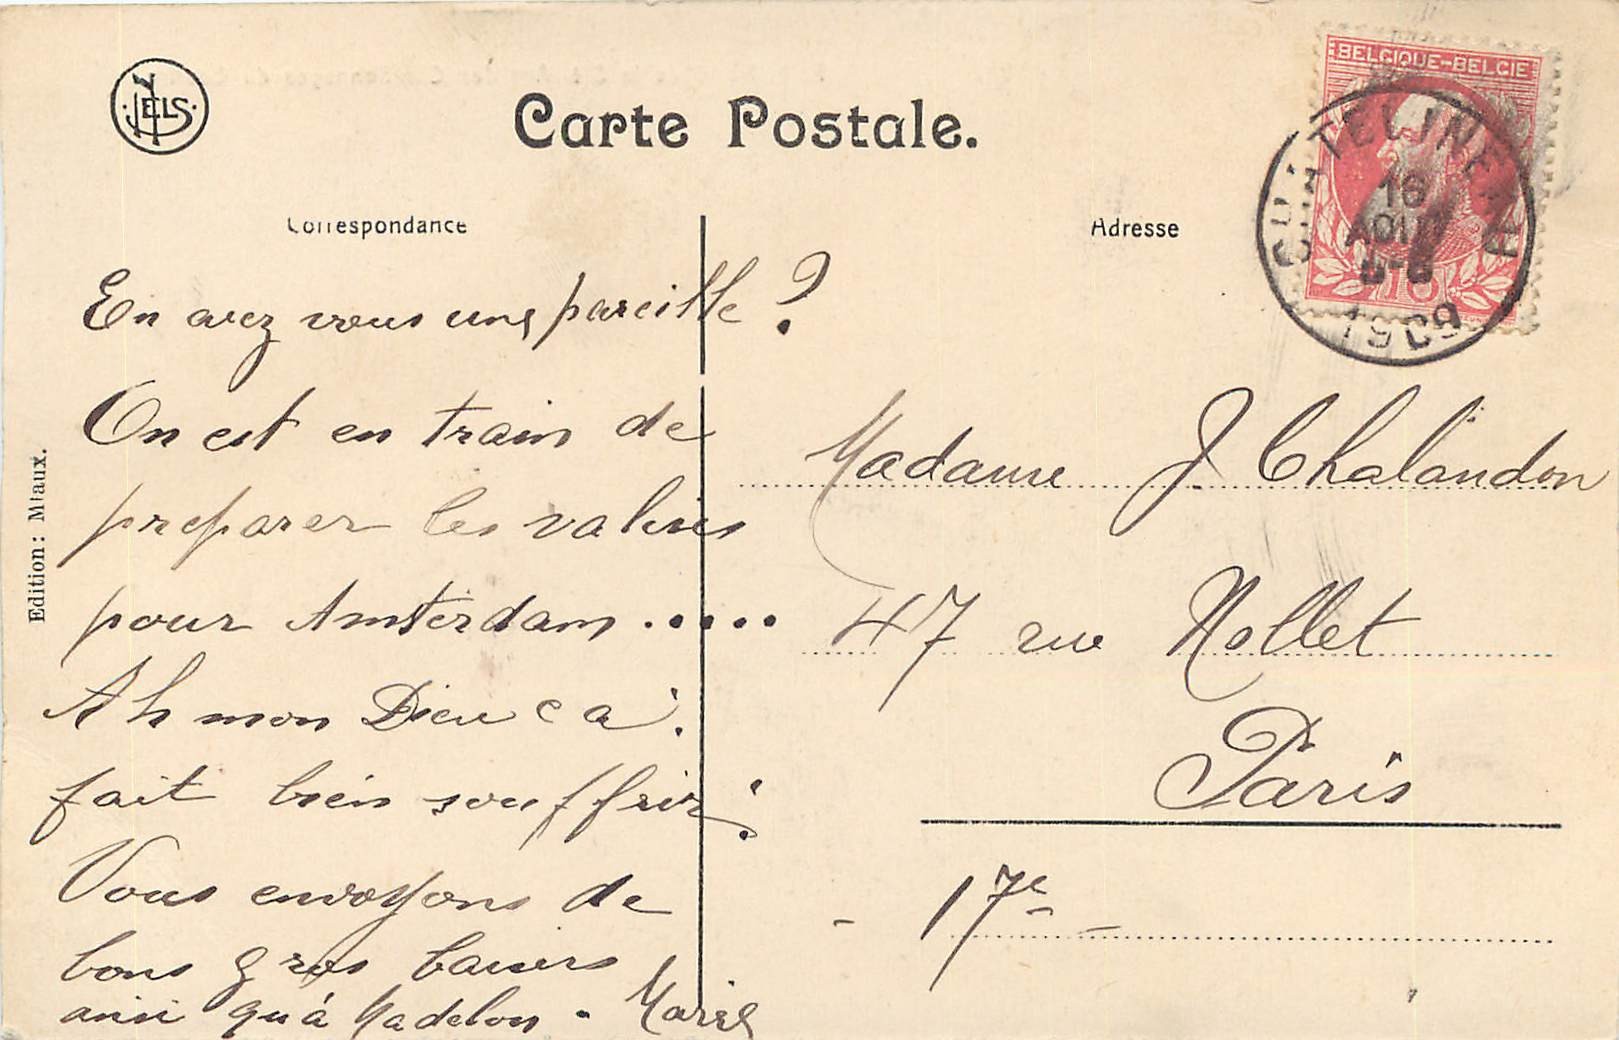 NELS
Carte Postale.
BELGIQUE-BELGIE
CHATELINEAU
16
AOUT
1909
10
Correspondance
Adresse
Edition: Miaux.
En avez vous une pareille ?
On est en train de
preparer les valises
pour Amsterdam .....
Ah mon Dieu ca
fait bien souffrir !
Vous envoyons de
bons gros baisers
ainsi qu'à Madelon - Marie
Madame J Chalandon
47 rue Nollet
Paris
- 17e -